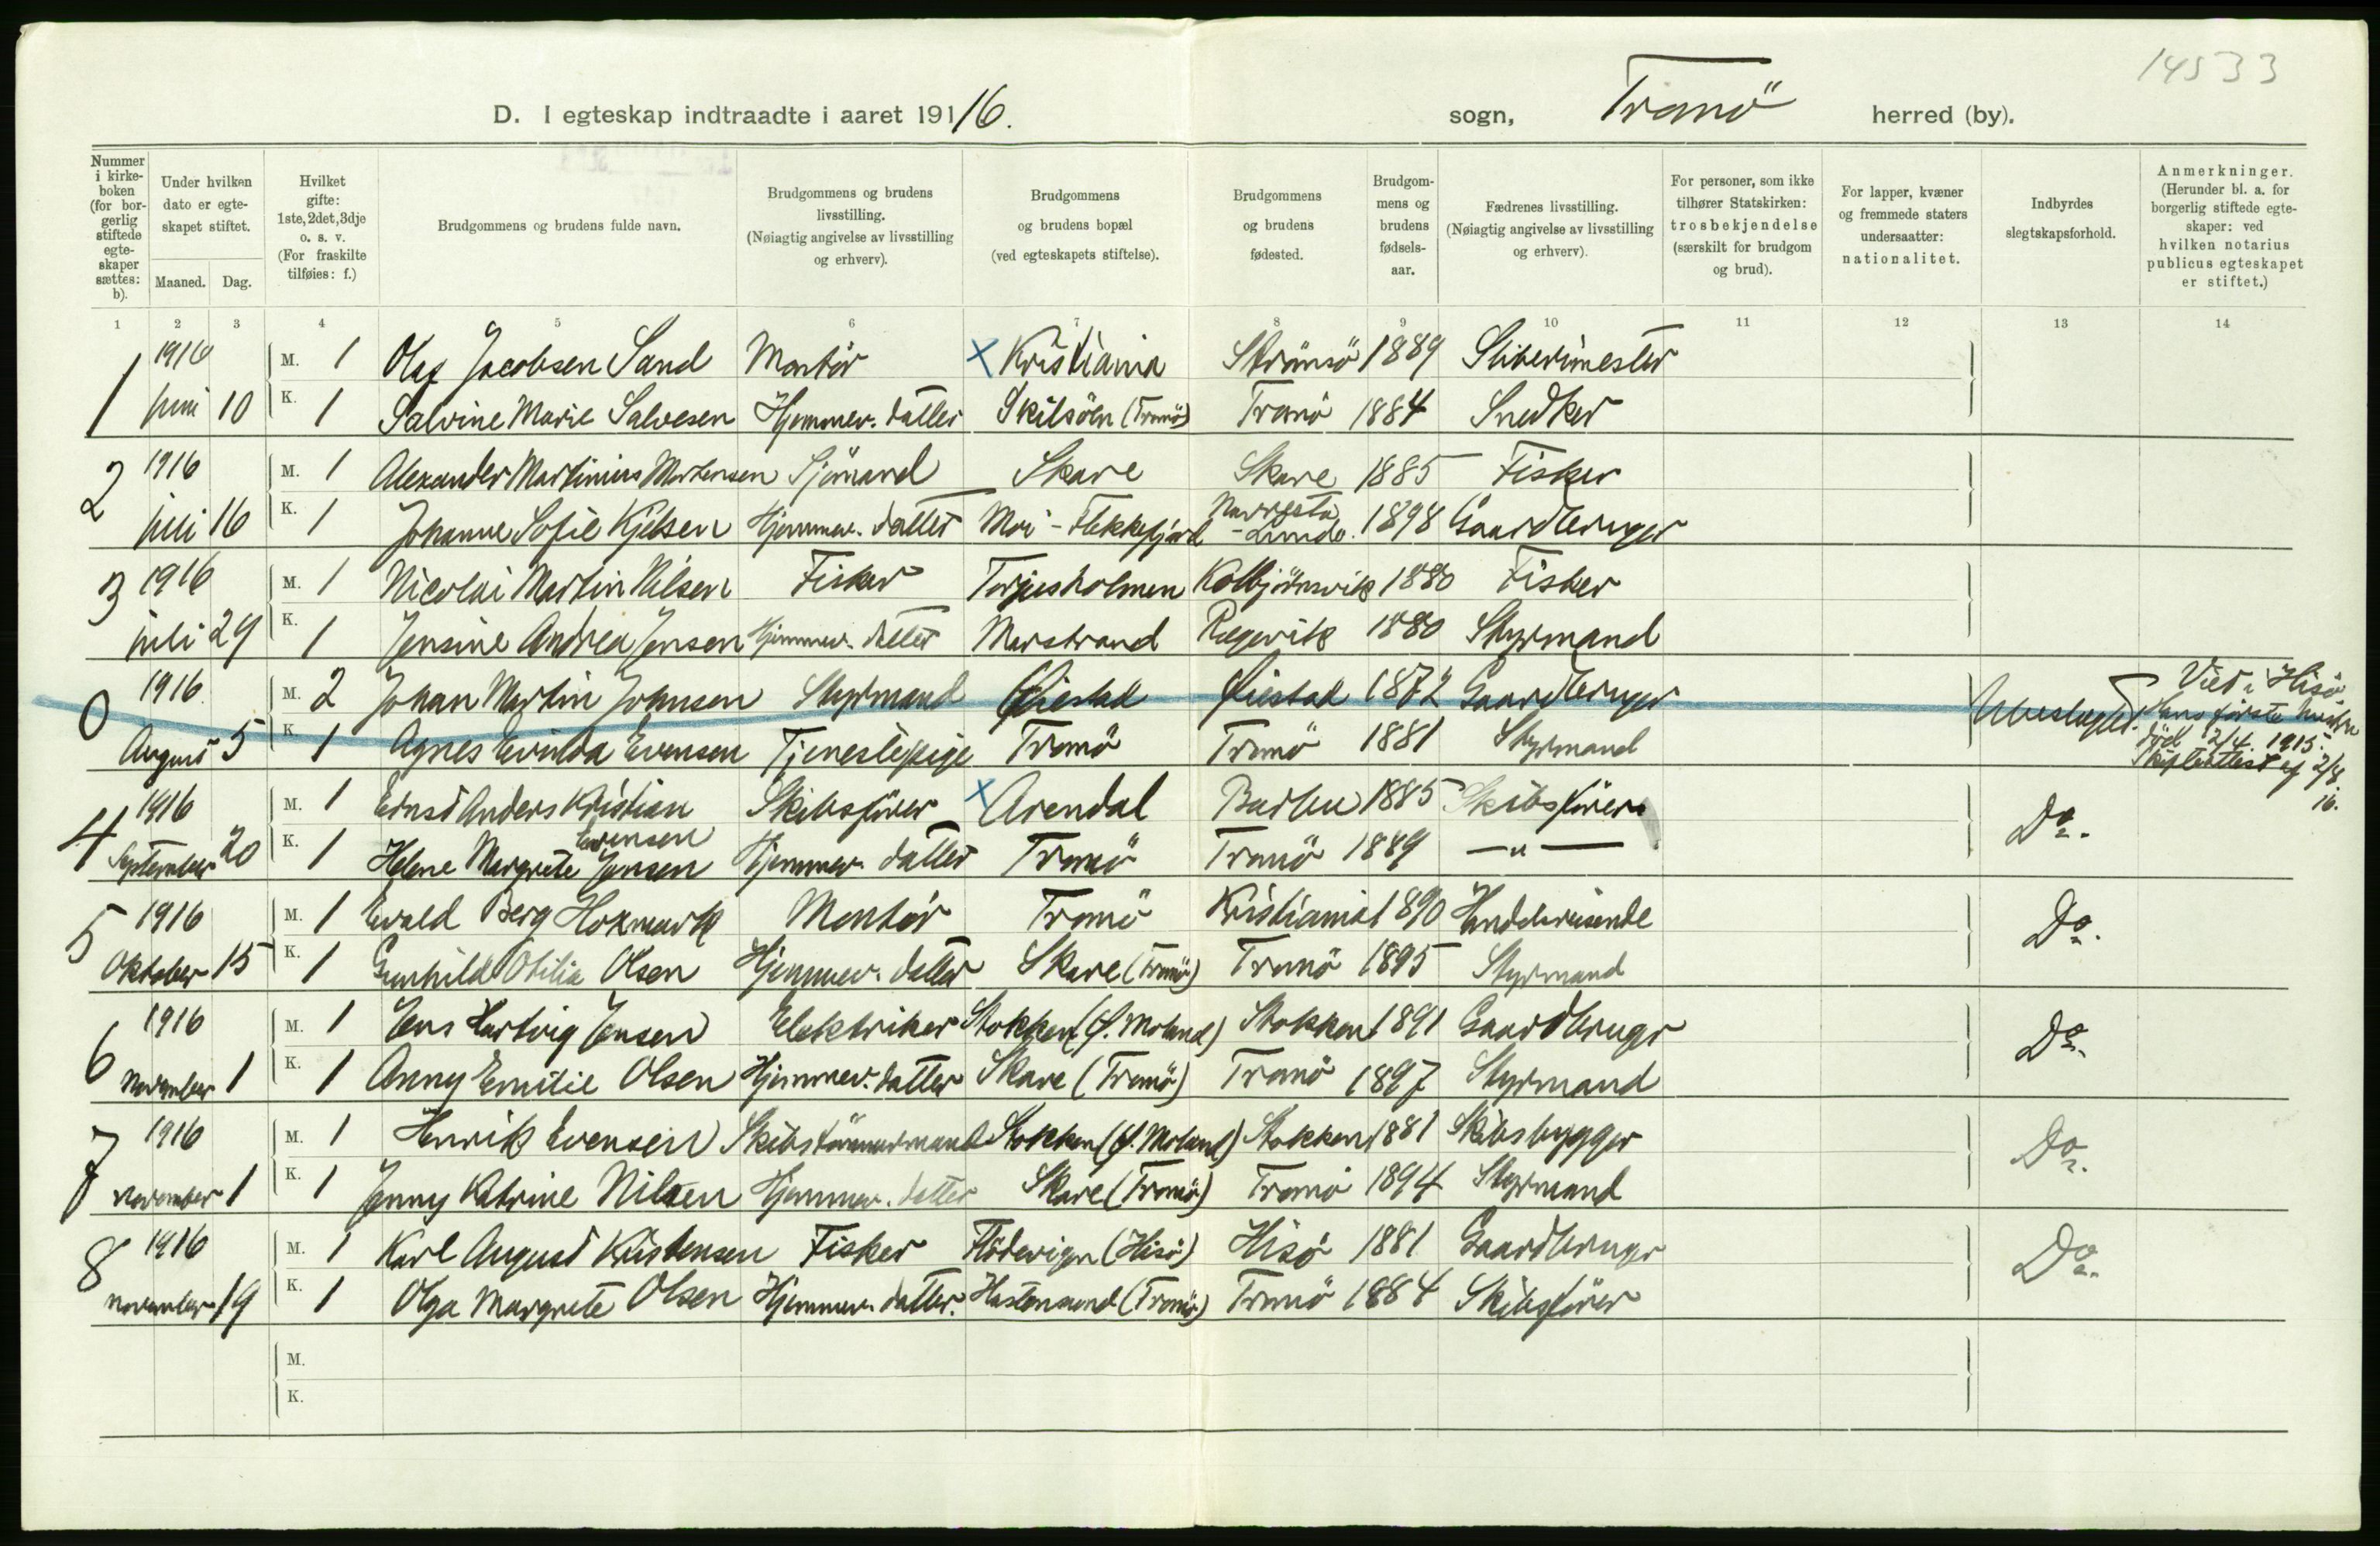 14533
D. I egteskap indtraadte i aaret 19116. sogn, Tromö herred (by).
Nummer i kirkeboken (for borgerlig stiftede egteskaper sættes: b).
Under hvilken dato er egteskapet stiftet.
Maaned. Dag.
Hvilket gifte: 1ste, 2det, 3dje o. s. v. (For fraskilte tilføies: f.)
Brudgommens og brudens fulde navn.
Brudgommens og brudens livsstilling. (Nøiagtig angivelse av livsstilling og erhverv).
Brudgommens og brudens bopæl (ved egteskapets stiftelse).
Brudgommens og brudens fødested.
Brudgommens og brudens fødselsaar.
Fædrenes livsstilling. (Nøiagtig angivelse av livsstilling og erhverv).
For personer, som ikke tilhører Statskirken: trosbekjendelse (særskilt for brudgom og brud).
For lapper, kvæner og fremmede staters undersaatter: nationalitet.
Indbyrdes slegtskapsforhold.
Anmerkninger. (Herunder bl. a. for borgerlig stiftede egteskaper: ved hvilken notarius publicus egteskapet er stiftet.)
1 2 3 4 5 6 7 8 9 10 11 12 13 14
1 1916 M. 1 Olaf Jacobsen Sand Montör x Kristiania Strömsö 1889 Sliberimester
juni 10 K. 1 Salvine Marie Salvesen Hjemmev. datter Skilsöen (Tromö) Tromö 1884 Snedker
2 1916 M. 1 Alexander Martinius Mortensen Sjömand Skare Skare 1885 Fisker
juli 16 K. 1 Johanne Sofie Kjelsen Hjemmev. datter Moi - Flekkefjord - Lunde. 1898 Gaardbruger
3 1916 M. 1 Nicolai Martin Nilsen Fisker Torjusholmen Kolbjörnsvik 1880 Fisker
juli 29 K. 1 Jensine Andrea Jensen Hjemmev. datter Marstrand Rægevik 1880 Styrmand
0 1916 M. 2 Johan Martin Johnsen Styrmand Øiestad Øiestad 1872 Gaardbruger Ubeslægtet. Viet i Hisö
August 5 K. 1 Agnes Evilda Evensen Tjenestepige Tromö Tromö 1881 Styrmand Hans förste hustru
död 12/4. 1915.
Skifteattest af 2/8
16.
4 1916 M. 1 Ernst Anders Kristian Evensen Skibsförer x Arendal Barbu 1885 Skibsförer Do.
September 20 K. 1 Helene Margrete Jensen Hjemmev. datter Tromö Tromö 1889 —"—
5 1916 M. 1 Evald Berg Hoxmark Montör Tromö Kristiania 1890 Handelsreisende Do.
Oktober 15 K. 1 Gunhild Otilia Olsen Hjemmev. datter Skare (Tromö) Tromö 1895 Styrmand
6 1916 M. 1 Jens Hartvig Jensen Elektriker Stokken (Ö. Moland) Stokken 1891 Gaardbruger Do.
November 1 K. 1 Anny Emilie Olsen Hjemmev. datter Skare (Tromö) Tromö 1897 Styrmand
7 1916 M. 1 Henrik Evensen Skibstömmermand Stokken (Ö. Moland) Stokken 1881 Skibsbygger Do.
November 1 K. 1 Jenny Katrine Nilsen Hjemmev. datter Skare (Tromö) Tromö 1894 Styrmand
8 1916 M. 1 Karl August Kristensen Fisker Flödevigen (Hisö) Hisö 1881 Gaardbruger Do.
November 19 K. 1 Olga Margrete Olsen Hjemmev. datter. Hastensund (Tromö) Tromö 1884 Skibsförer
M.
K.